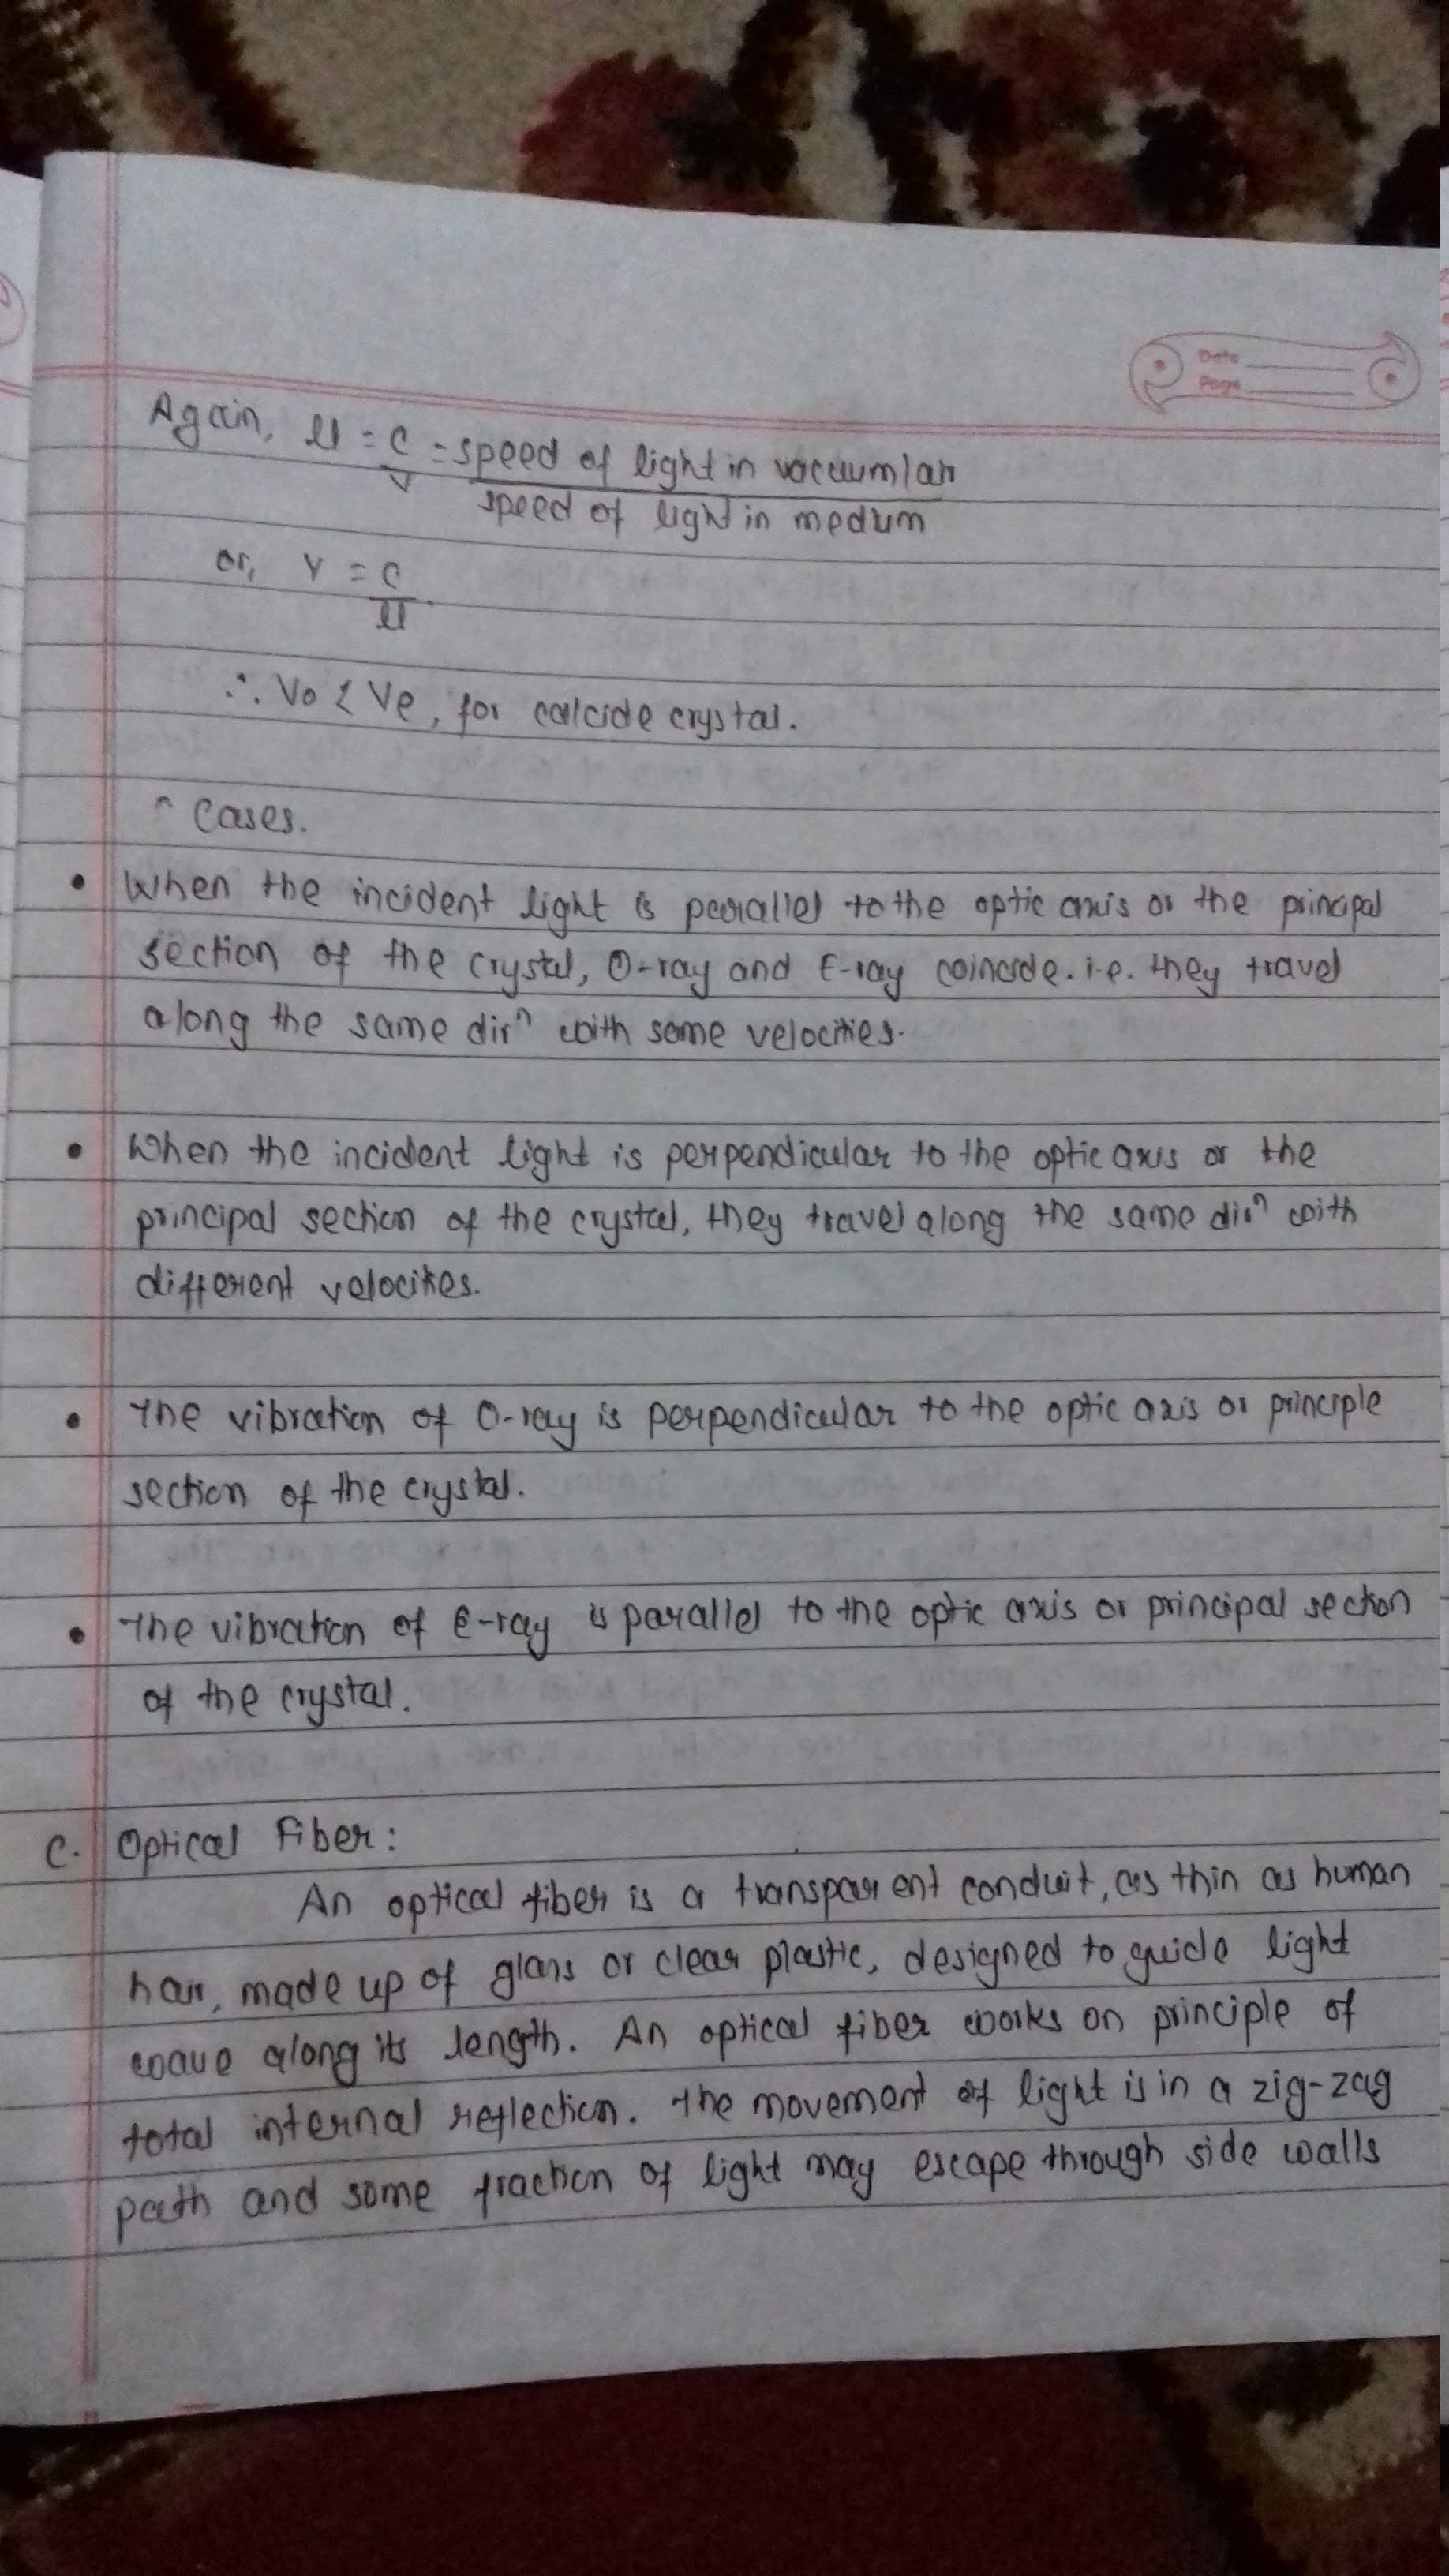 Date
Page
Again, μ = c/v = speed of light in vacuum/air / speed of light in medium
or, v = c/μ.
∴ Vo < Ve, for calcide crystal.
^ Cases.
• When the incident light is parallel to the optic axis or the principal
section of the crystal, O-ray and E-ray coincide. i.e. they travel
along the same dirⁿ with same velocities.
• When the incident light is perpendicular to the optic axis or the
principal section of the crystal, they travel along the same dirⁿ with
different velocities.
• The vibration of O-ray is perpendicular to the optic axis or principle
section of the crystal.
• The vibration of E-ray is parallel to the optic axis or principal section
of the crystal.
C. Optical Fiber:
An optical fiber is a transparent conduit, as thin as human
hair, made up of glass or clear plastic, designed to guide light
wave along its length. An optical fiber works on principle of
total internal reflection. The movement of light is in a zig-zag
path and some fraction of light may escape through side walls